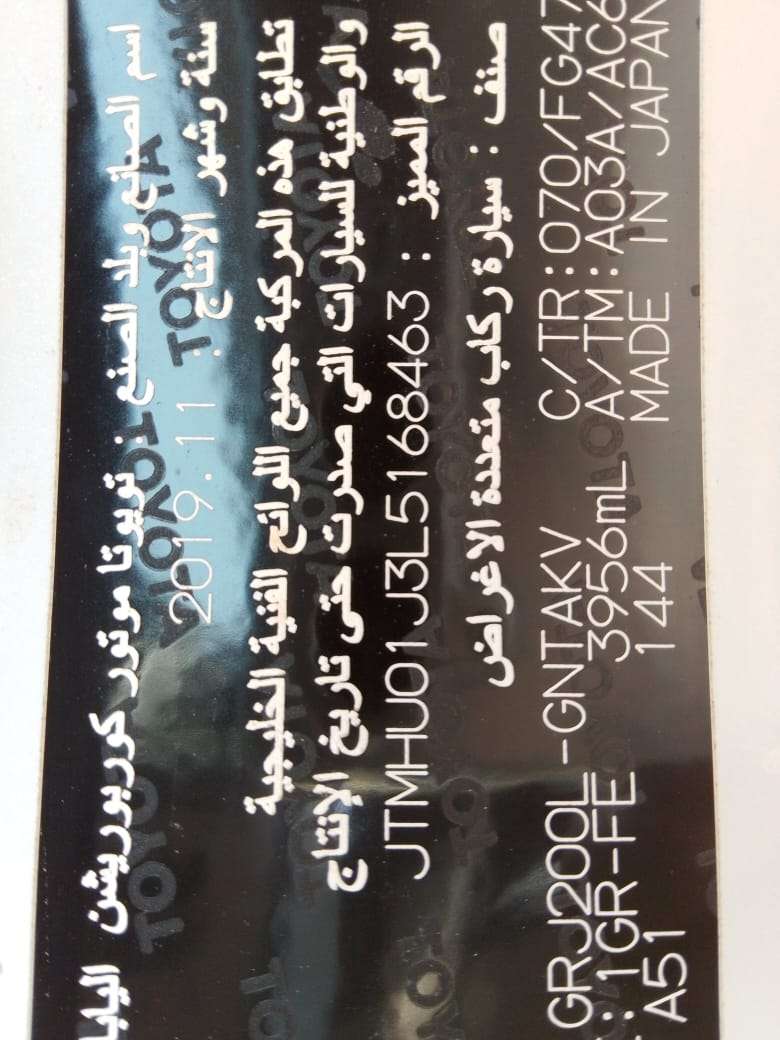 اسم الصانع وبلد الصنع : تويوتا موتور كوربوريشن اليابا
سنة وشهر الانتاج : 2019.11
تطابق هذه المركبة جميع اللوائح الفنية الخليجية
والوطنية للسيارات التي صدرت حتى تاريخ الإنتاج
الرقم المميز : JTMHU01J3L5168463
صنف : سيارة ركاب متعددة الاغراض
GRJ200L-GNTAKV C/TR:070/FG47
: 1GR-FE 3956mL A/TM:A03A/AC6
A51 144 MADE IN JAPAN